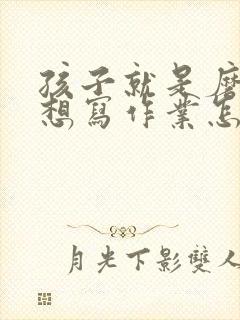 孩子就是
想寫作業怎
月光下影雙人